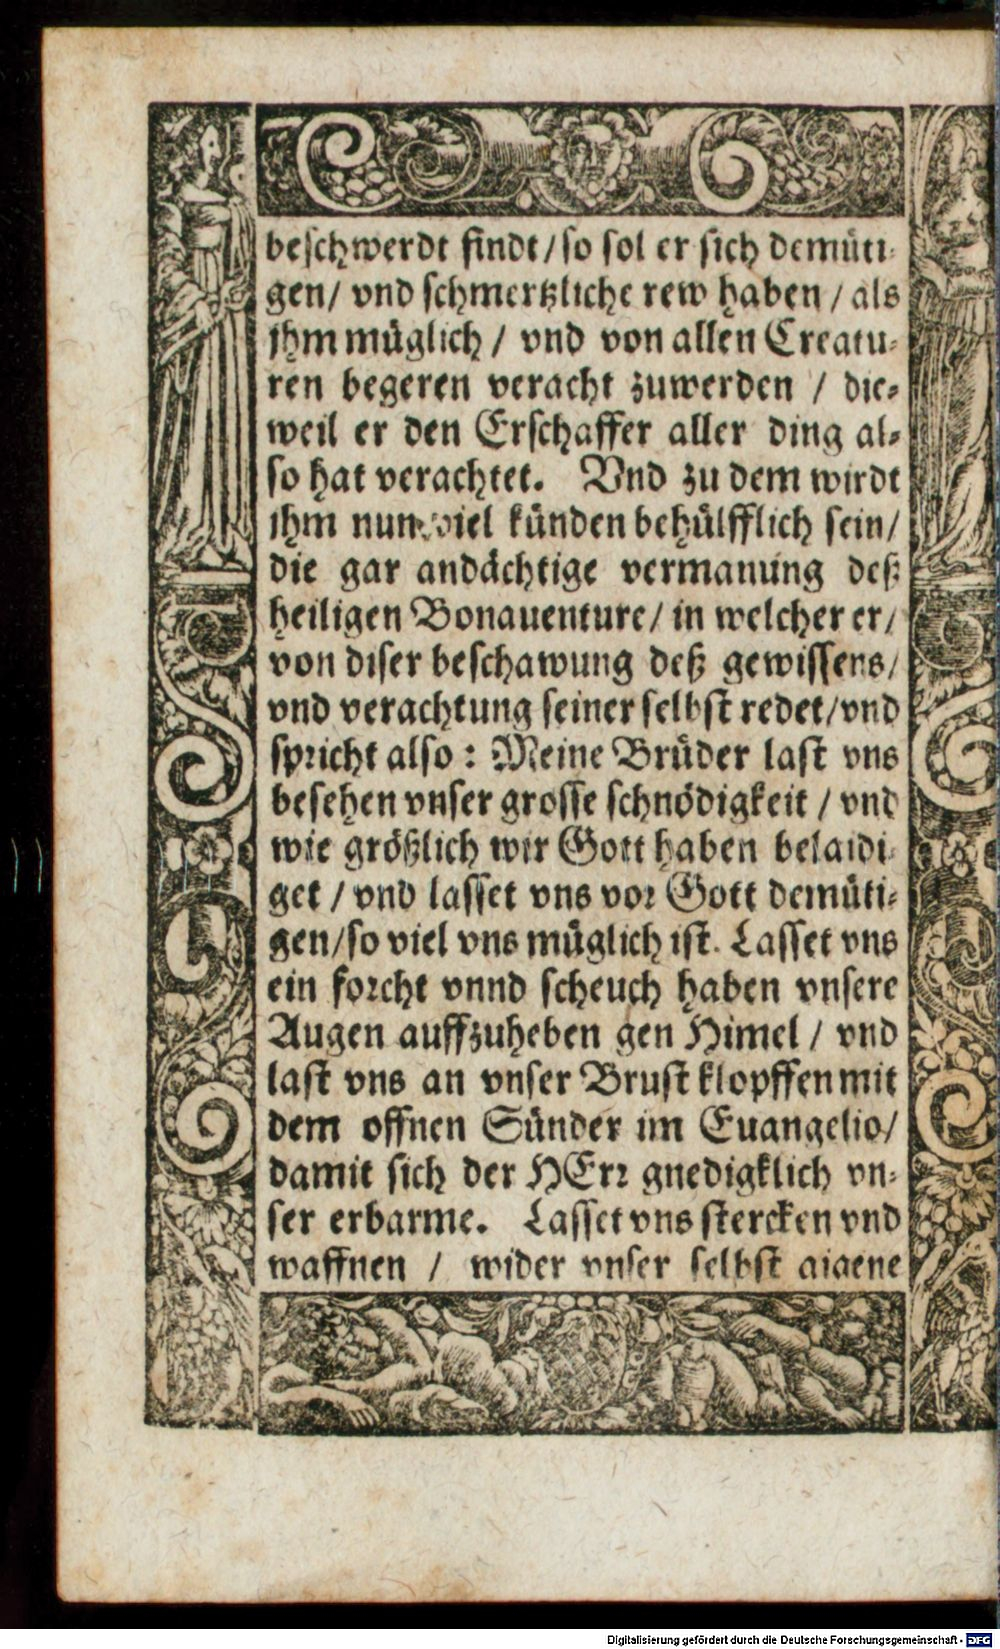 beschwerdt findt/ so sol er sich demüti-
gen/ vnd schmertzliche rew haben / als
jhm müglich / vnd von allen Creatu-
ren begeren veracht zuwerden / die-
weil er den Erschaffer aller ding al-
so hat verachtet. Vnd zu dem wirdt
jhm nun viel künden behülfflich sein/
die gar andächtige vermanung deß
heiligen Bonauenture/ in welcher er/
von diser beschawung deß gewissens/
vnd verachtung seiner selbst redet/vnd
spricht also : Meine Brüder last vns
besehen vnser grosse schnödigkeit / vnd
wie größlich wir Gott haben belaidi-
get / vnd lasset vns vor Gott demüti-
gen/so viel vns müglich ist. Lasset vns
ein forcht vnnd scheuch haben vnsere
Augen auffzuheben gen Himel / vnd
last vns an vnser Brust klopffen mit
dem offnen Sünder im Euangelio/
damit sich der HErr gnedigklich vn-
ser erbarme. Lasset vns stercken vnd
waffnen / wider vnser selbst aigene
Digitalisierung gefördert durch die Deutsche Forschungsgemeinschaft - DFG